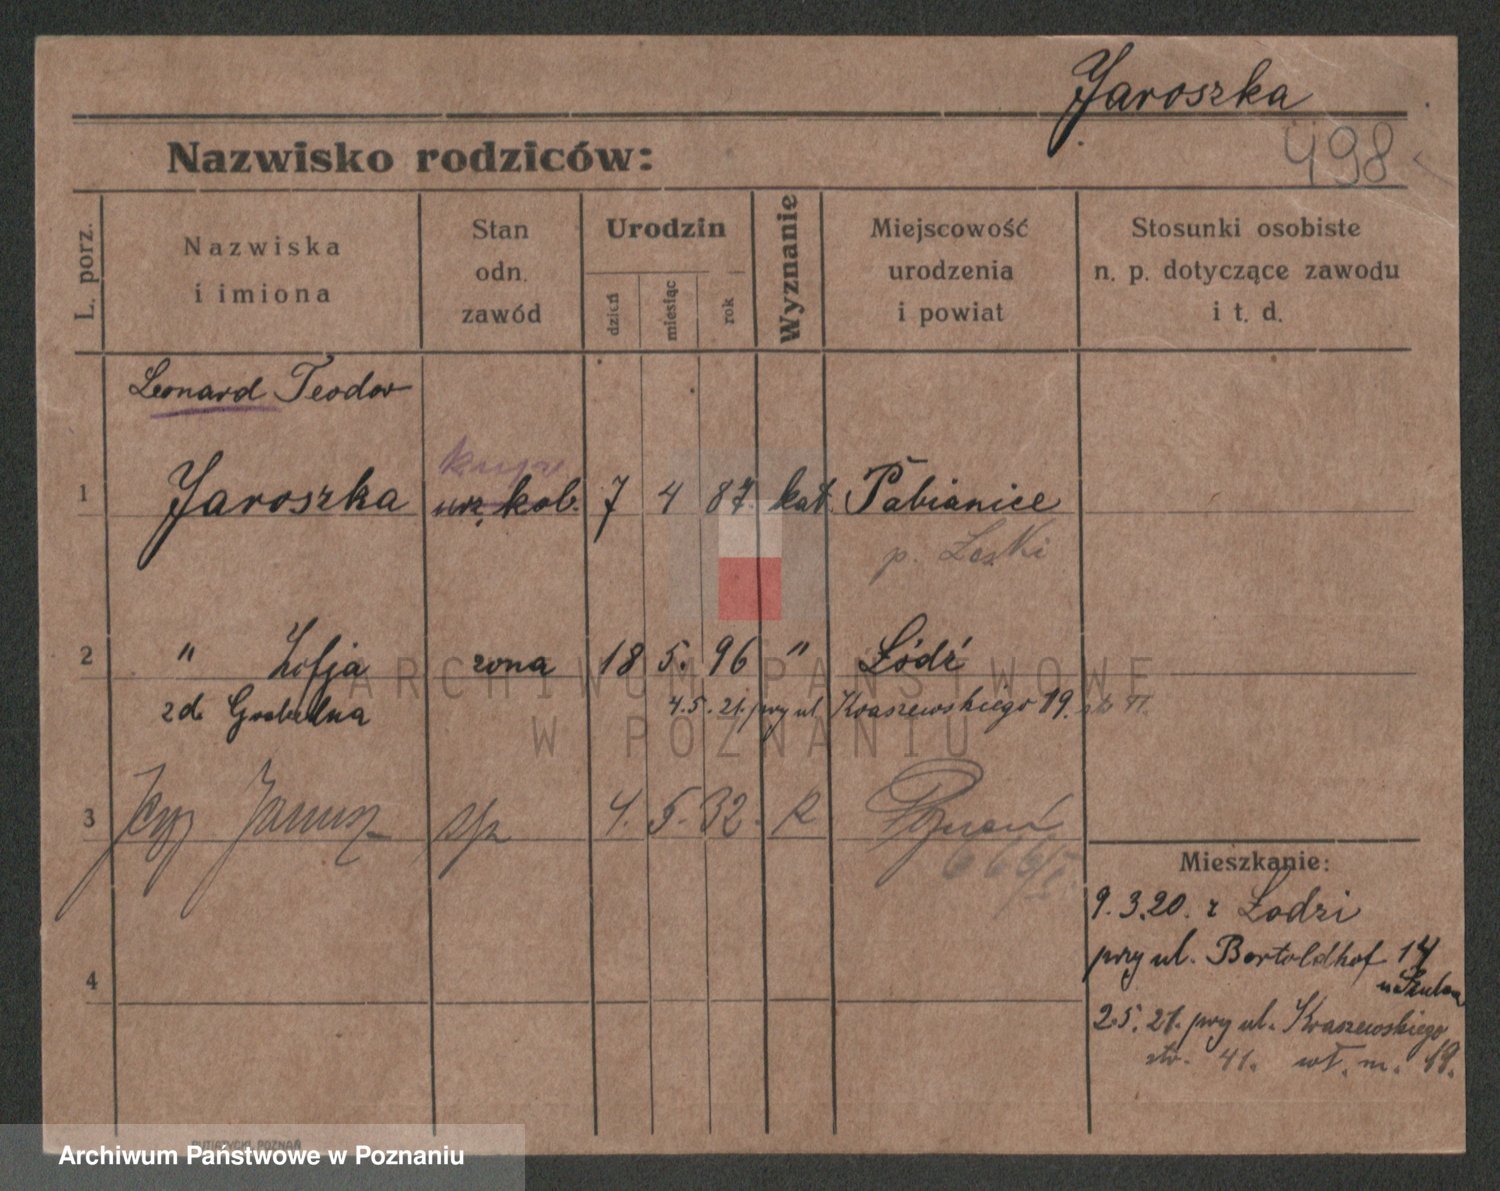 Jaroszka
498
Nazwisko rodziców:
L. porz.
Nazwiska
i imiona
Stan
odn.
zawód
Urodzin
dzień
miesiąc
rok
Wyznanie
Miejscowość
urodzenia
i powiat
Stosunki osobiste
n. p. dotyczące zawodu
i t. d.
Leonard Teodor
1 Jaroszka urz. kol. 7 4 87. kat. Pabianice
p. Łaski
2 " Zofja żona 18 5. 96 " Łódź
zd.
4.5.21. przy ul. Kraszewskiego 19.
3 Jerzy Janusz 4. 5. 32. R Poznań
Mieszkanie:
9.3.20. z Łodzi
przy ul. Bertoldhof 14
4
2.5.21. przy ul. Kraszewskiego
str. 41. wł. m. 19.
ARCHIWUM PAŃSTWOWE
W POZNANIU
Archiwum Państwowe w Poznaniu